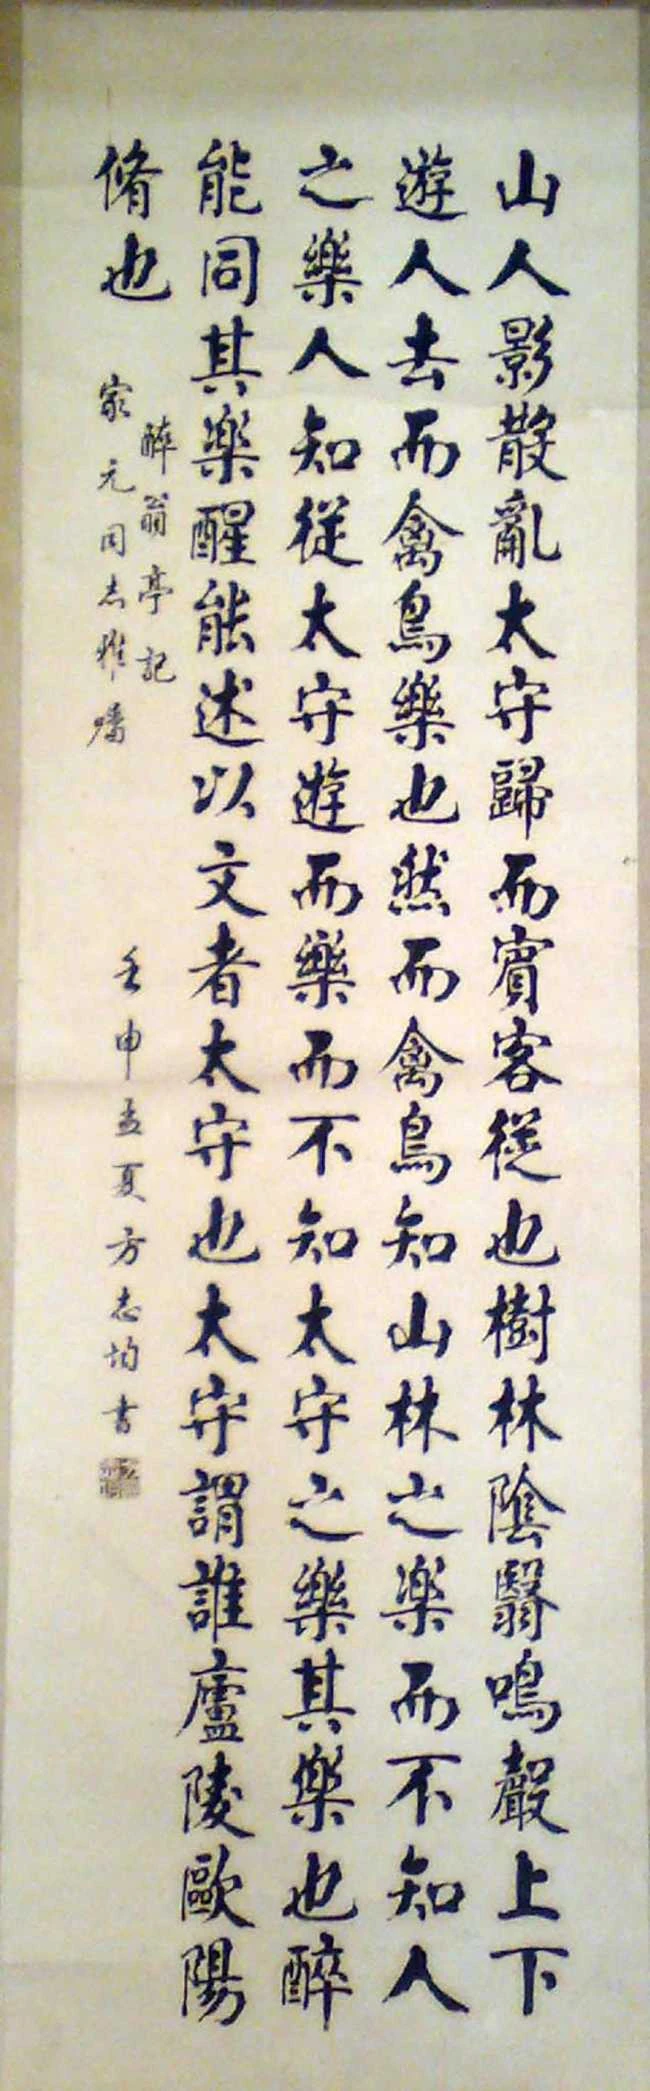 山人影散亂太守歸而賓客從也樹林陰翳鳴聲上下
遊人去而禽鳥樂也然而禽鳥知山林之楽而不知人
之樂人知從太守遊而樂而不知太守之樂其樂也醉
能同其楽醒能述以文者太守也太守謂誰廬陵歐陽
脩也
醉翁亭記
家元同志雅
壬申孟夏方志均書